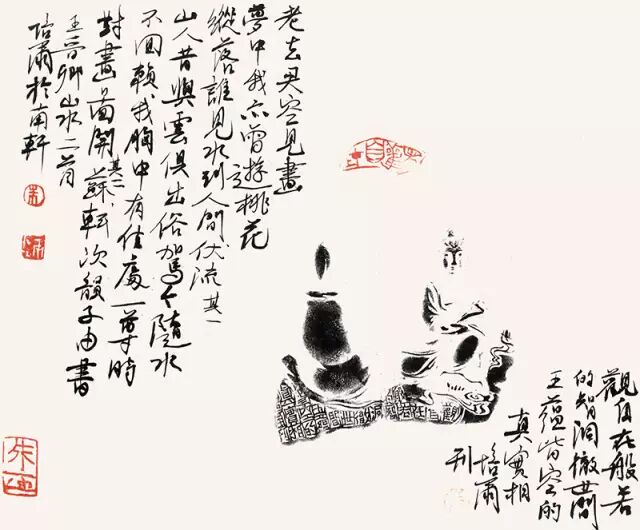 老去君空見畫
夢中我亦曾遊桃花
縱落誰見水到人間伏流其一
山人昔與雲俱出俗駕今隨水
不回賴我胸中有佳處一尊時
對畫圖開其二蘇軾次韻子由書
王晉卿山水二首
培爾於南軒
觀自在般若
的智洞徹世間
五蘊皆空的
真實相
培爾
刊